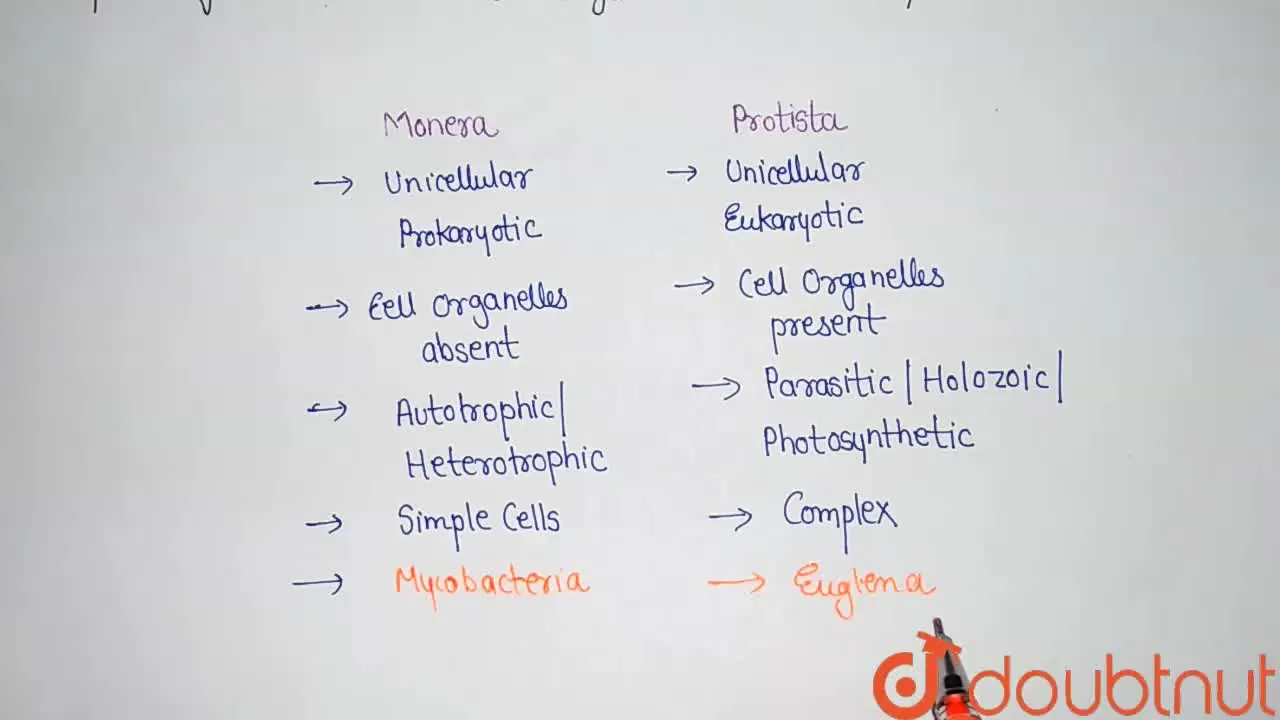 Monera
Protista
→ Unicellular
Prokaryotic
→ Unicellular
Eukaryotic
→ Cell Organelles
absent
→ Cell Organelles
present
→ Autotrophic/
Heterotrophic
→ Parasitic/Holozoic/
Photosynthetic
→ Simple Cells
→ Complex
→ Mycobacteria
→ Euglena
doubtnut